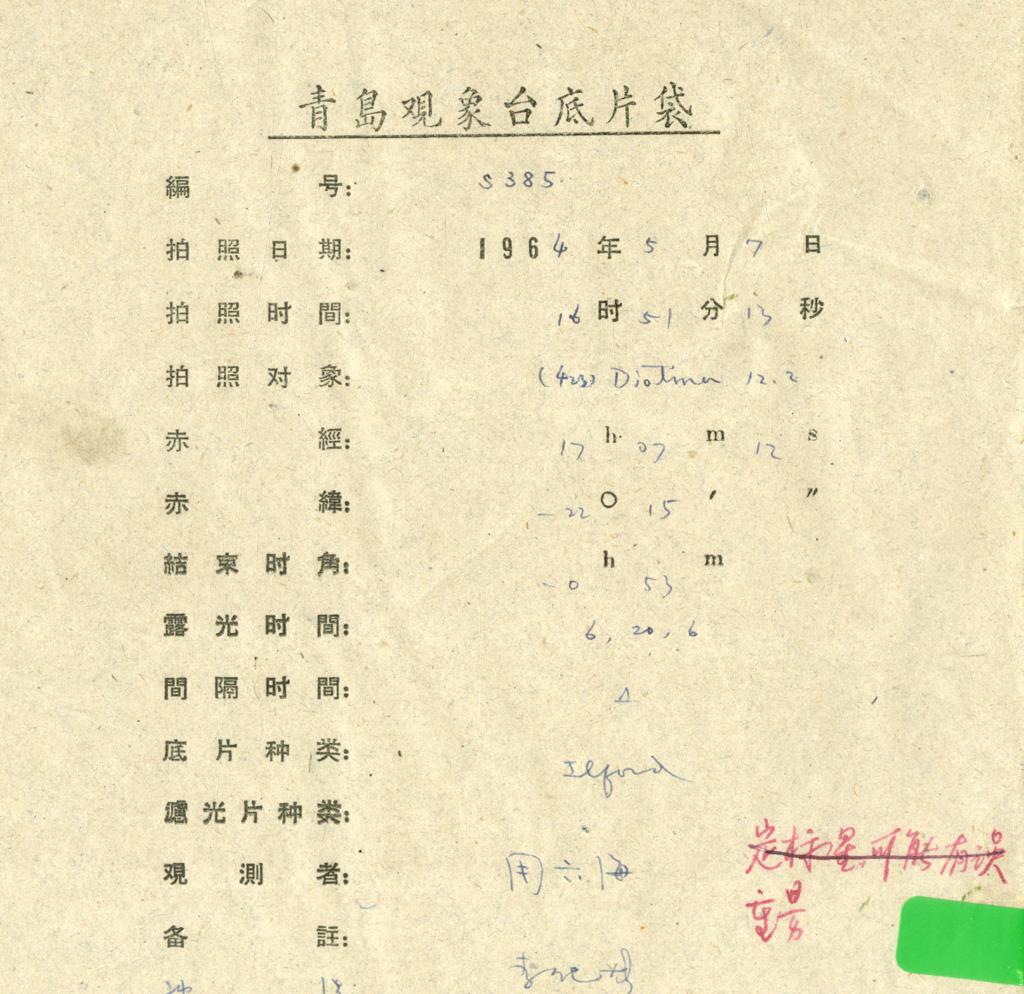 青島观象台底片袋
編号: S385
拍照日期: 1964年5月7日
拍照时間: 16时51分13秒
拍照对象: (423) Diotima 12.2
赤經: 17h 07m 12s
赤緯: -22° 15′ ″
結束时角: -0h 53m
露光时間: 6, 20, 6
間隔时間:
底片种类: Ilford
濾光片种类:
观測者:
定标星可能有误
重昜
备註: